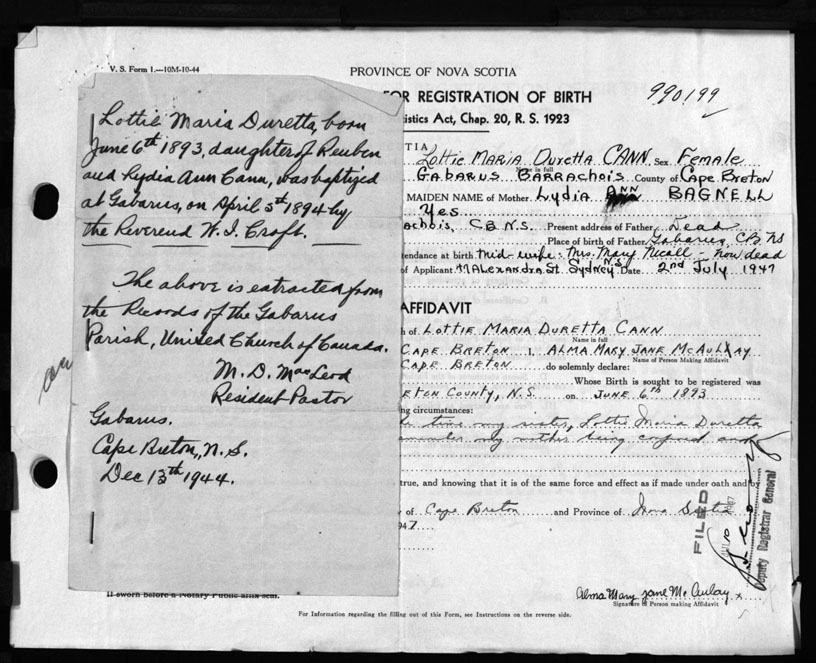 V. S. Form 1.—10M-10-44
PROVINCE OF NOVA SCOTIA
FOR REGISTRATION OF BIRTH
990199
istics Act, Chap. 20, R. S. 1923
Lottie Maria Duretta, born
June 6th 1893, daughter of Reuben
and Lydia Ann Cann, was baptized
at Gabarus, on April 5th 1894 by
the Reverend W. I. Croft.
The above is extracted from
the Records of the Gabarus
Parish, United Church of Canada.
M. D. MacLeod
Resident Pastor
Gabarus.
Cape Breton, N. S.
Dec 13th 1944.
can
TIA
Lottie MARIA Duretta CANN Sex Female
Name in full
Gabarus Barrachois County of Cape Breton
MAIDEN NAME of Mother Lydia Ann BAGNELL
Yes
achois, C.B N.S. Present address of Father Dead
Place of birth of Father Gabarus, C.B. NS
ttendance at birth mid-wife Mrs. Mary Nicall - now dead
of Applicant 11 Alexandra St. Sydney N.S. Date 2nd July 1947
AFFIDAVIT
h of LOTTIE MARIA DURETTA CANN
Name in full
CAPE BRETON I, ALMA MARY JANE McAULAY
Name of Person Making Affidavit
CAPE BRETON do solemnly declare:
Whose Birth is sought to be registered was
ETON COUNTY, N.S. on JUNE 6th 1893
ng circumstances:
time my sister, Lottie Maria Duretta
my mother being confined and
true, and knowing that it is of the same force and effect as if made under oath and by
of Cape Breton and Province of Nova Scotia
947
FILED
Deputy Registrar General
If sworn before a Notary Public affix seal.
Alma Mary Jane McAulay x
Signature of Person making Affidavit
For Information regarding the filling out of this Form, see Instructions on the reverse side.